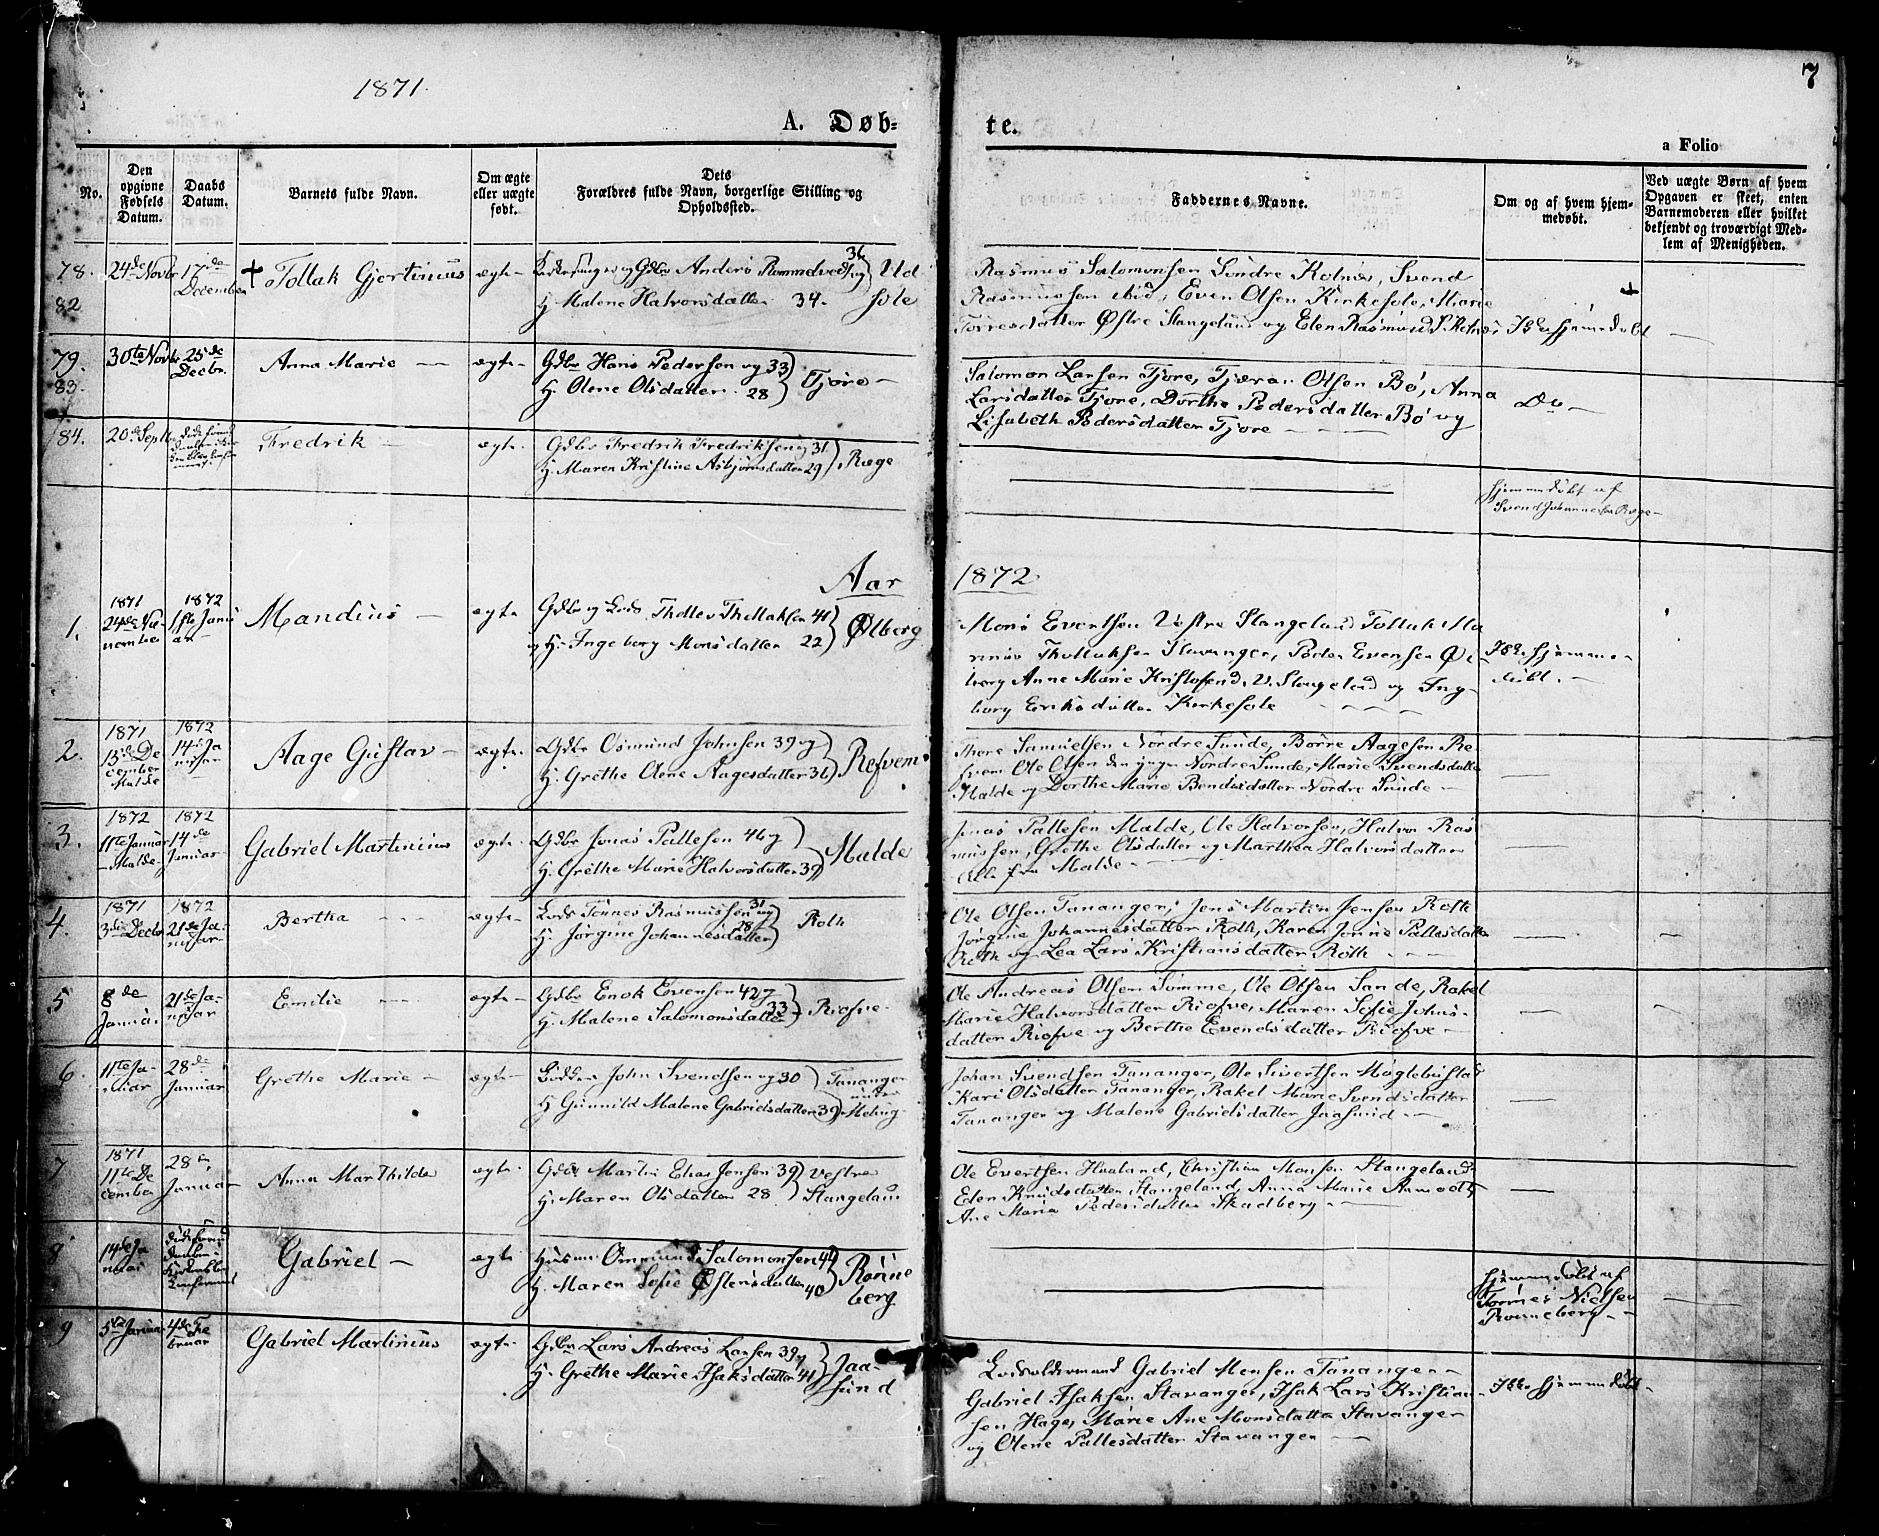 1871.
7
A. Døb-
te.
a Folio
No.
Den opgivne Fødsels Datum.
Daabs Datum.
Barnets fulde Navn.
Om ægte eller uægte født.
Dets Forældres fulde Navn, borgerlige Stilling og Opholdssted.
Faddernes Navne.
Om og af hvem hjemmedøbt.
Ved uægte Børn af hvem Opgaven er skeet, enten Barnemoderen eller hvilket bekjendt og troværdigt Medlem af Menigheden.
78. 24de Novbr 17de + Tollak Gjertinius ægte Gdbr Anders 36
82 December H. Malene Halvorsdatter 34. sole
Rasmus Salomonsen Søndre Kolnes, Svend
Rasmussen ibid, Even Olsen Kirkesole, Marie
Torresdatter Østre Stangeland og Elen Ikke hjemmedøbt
79. 30te Novbr 25de Anna Marie ægte Gdbr Hans Pedersen og 33
83. Decbr. H. Olene Olsdatter 28 Tjore
Salomon Larsen Tjore, Tjøran Olsen Bø, Anna
Larsdatter Tjore, Dorthe Pedersdatter Bø og Do
Lisabeth Pedersdatter Tjore
84. 20de Septbr Fredrik ægte Gdbr Fredrik Fredriksen og 31
H. Maren Kristine Asbjørnsdatter 29 Ræge
hjemmedøbt af
Svend Johannesen Ræge
Aar
1872
1871 1872
1. 24de No- 1ste Janu Mandius ægte Gdbr og Lods Tholles Thollaksen 41
vember ar og H. Ingeborg Monsdatter 22 Ølberg
Mons Evertsen Vestre Stangeland Tollak Ma
rinius Thollaksen Stavanger, Peder Evensen Øl Ikke hjemme-
berg Anne Marie V. Stangeland og Inge døbt.
borg Eriksdatter Kirkesole
1871 1872
2. 13de De 14de Ja Aage Gustav ægte Gdbr Osmund Johnsen 39 og
cember nuar H. Grethe Olene Aagesdatter 36 Refvem
Malde
Thore Samuelsen Nordre Sunde, Børre Aagesen Re
fvem Ole Olsen den yngre Nordre Sunde, Marie Svendsdatter
Malde og Dorthe Marie Bendiksdatter Nordre Sunde
1872 1872
3. 11te Januar 14de Gabriel Martinius ægte Gdbr Jonas Pallesen 46 og
Malde Januar H. Grethe Marie Halvorsdatter 39 Malde
Jonas Pallesen Malde, Ole Halvorsen, Halvor Ras
mussen, Grethe Olsdatter og Marthea Halvorsdatter
Alle fra Malde
1871 1872
4 3die Decbr 21de Ja- Bertha ægte Lods Tønnes Rasmussen og 31
nuar H. Jørgine Johannesdatter 28 Roth
Ole Olsen Tananger, Jens Martin Jensen Roth
Jørgine Johannesdatter Roth, Karen Jonine Pallesdatter
Roth og Lea Lars Kristiansdatter Roth
5 8de 21de Ja- Emilie ægte Gdbr Enok Evensen 42 og
Januar nuar H. Malene Salomonsdatter 33 Risfve
Ole Andreas Olsen Sømme, Ole Olsen Sande, Rakel
Marie Halvorsdatter Risfve, Maren Sofie Johns-
datter Risfve og Berthe Evendsdatter Risfve
6. 11te Ja- 28de Grethe Marie ægte John Svendsen og 30 Tananger
nuar Januar H. Gunnild Malene Gabrielsdatter 39 under Meling
Johan Svendsen Tananger, Ole Sivertsen Møglebustad
Kari Olsdatter Tananger, Rakel Marie Svendsdatter
Tananger og Malene Gabrielsdatter Jaasund
1871
7 11te De 28de Anna Marthilde ægte Gdbr Martin Elias Jensen 39 Vestre
cember Januar H. Maren Olsdatter 28 Stangeland
Ole Evertsen Haaland, Christian Monsen Stangeland
Elen Knudsdatter Stangeland, Anna Marie
Ane Maria Pedersdatter Skadberg
8 14de Ja Gabriel ægte Husm. Salomonsen 44
nuar H. Maren Sofie Østensdatter 40 Rønne
berg
hjemmedøbt af
Tønnes Nielsen
Rønneberg
9 5te Januar 4de Fe Gabriel Martinius ægte Gdbr Lars Andreas Larsen 39 og
bruar H. Grethe Marie Isaksdatter 41 Jaa-
sund
Lodsoldermand Gabriel Monsen Tananger
Gabriel Isaksen Stavanger, Isak Lars Kristian- Ikke hjemmedøbt
sen Hage, Marie Ane Monsdatter Stavanger
og Olene Pallesdatter Stavanger